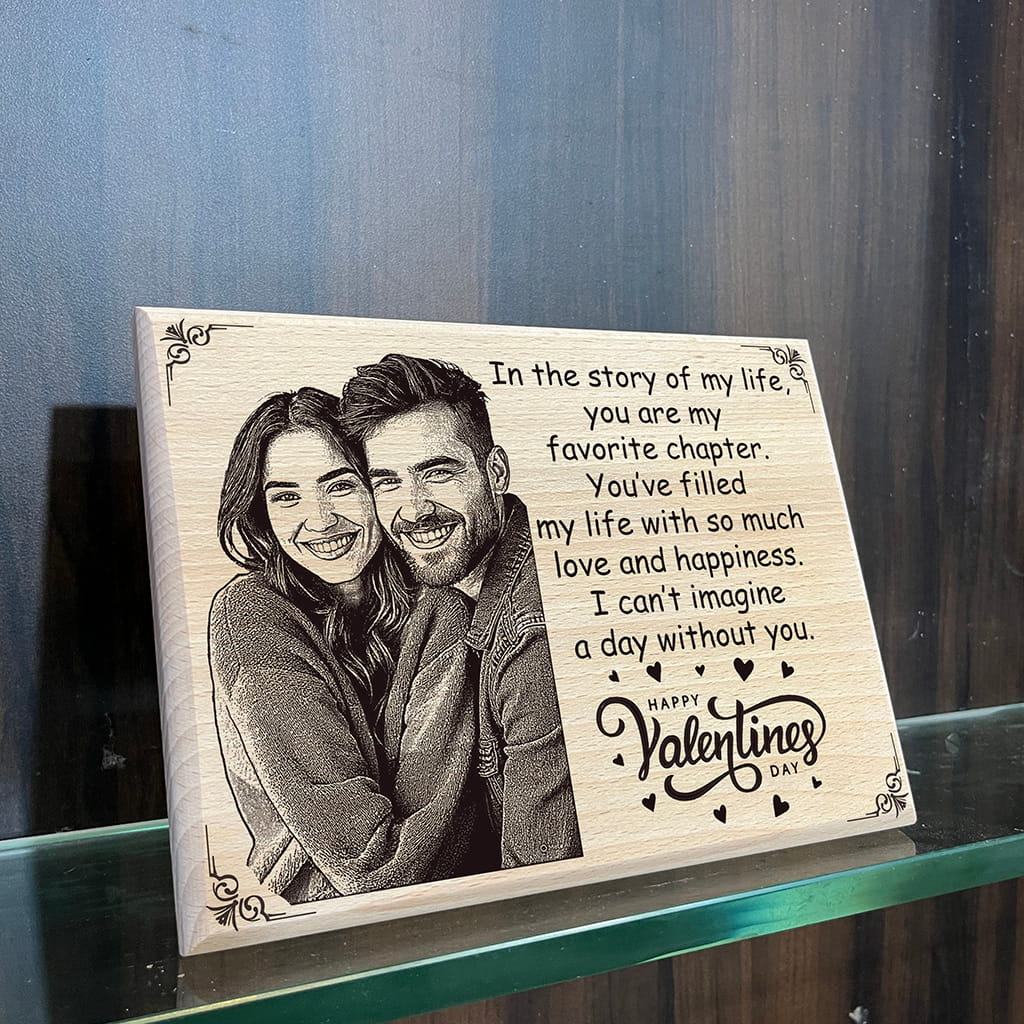 In the story of my life,
you are my
favorite chapter.
You've filled
my life with so much
love and happiness.
I can't imagine
a day without you.
HAPPY
Valentines
DAY